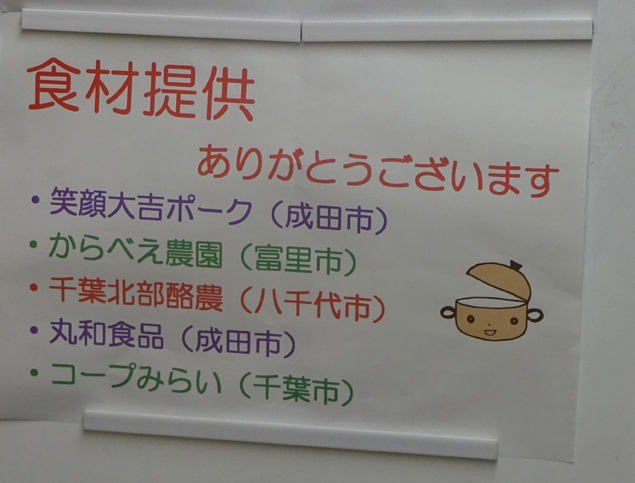 食材提供
ありがとうございます
・笑顔大吉ポーク（成田市）
・からべえ農園（富里市）
・千葉北部酪農（八千代市）
・丸和食品（成田市）
・コープみらい（千葉市）